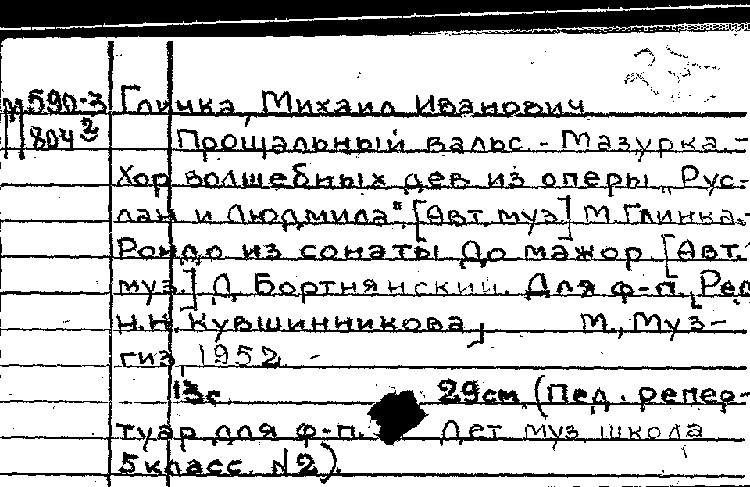 М590-3 Глинка, Михаил Иванович
П 804² Прощальный вальс. - Мазурка. -
Хор волшебных дев из оперы „Рус-
лан и Людмила". [Авт. муз.] М. Глинка. -
Рондо из сонаты До мажор [Авт.
муз.] Д. Бортнянский. Для ф-п. [Ред.
Н.Н. Кувшинникова] М., Муз-
гиз, 1952. -
13с 29см. (Пед. репер-
туар для ф-п. Дет. муз. школа
5 класс. N2).